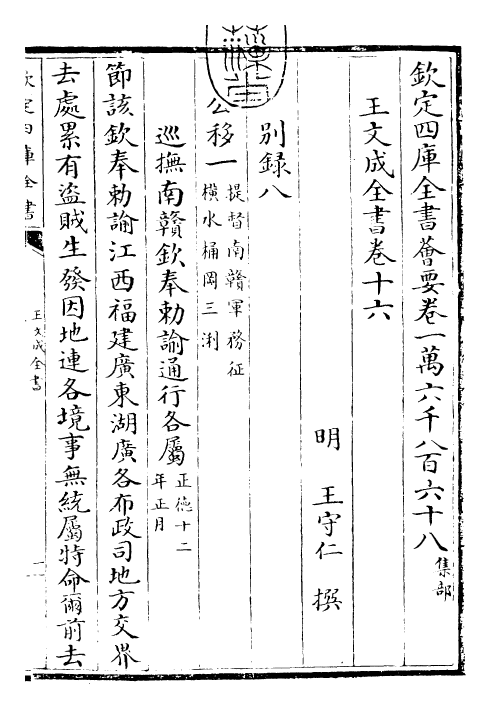 欽定四庫全書薈要卷一萬六千八百六十八集部
王文成全書卷十六
明 王守仁 撰
別錄八
公移一提督南贛軍務征
橫水桶岡三浰
巡撫南贛欽奉勅諭通行各屬正德十二
年正月
節該欽奉勅諭江西福建廣東湖廣各布政司地方交界
去處累有盜賊生發因地連各境事無統屬特命爾前去
欽定四庫全書
王文成全書
一